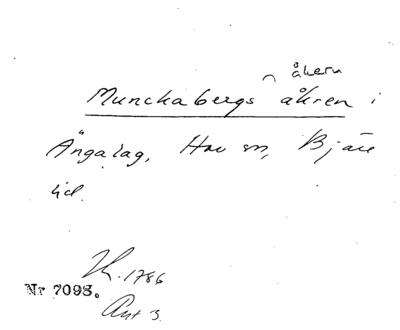 åkern
Munckabergs åkren i
Ängalag, Hov sn, Bjäre
hd.
H. 1786
Nr 7093.
Ant 3.